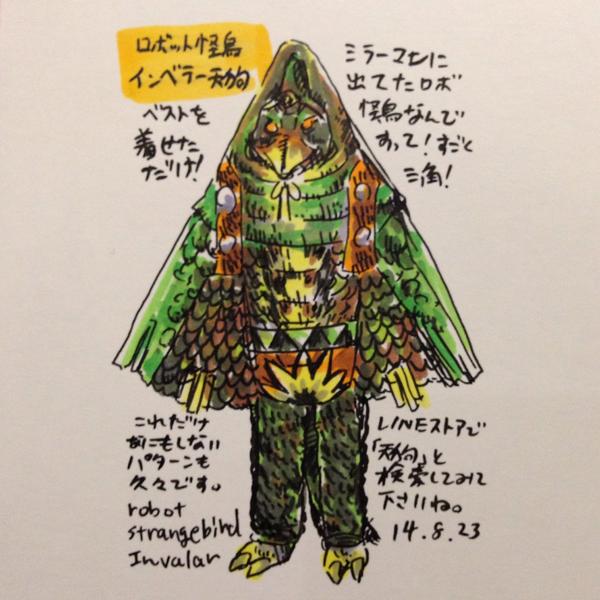 ロボット怪鳥
インベラー天狗
ベストを
着せた
だけ!
ミラーマンに
出てたロボ
怪鳥なんで
すって!すごく
三角!
これだけ
なにもしない
パターンも
久々です。
robot
strangebird
Invalar
LINEストアで
「天狗」と
検索してみて
下さいね。
14.8.23